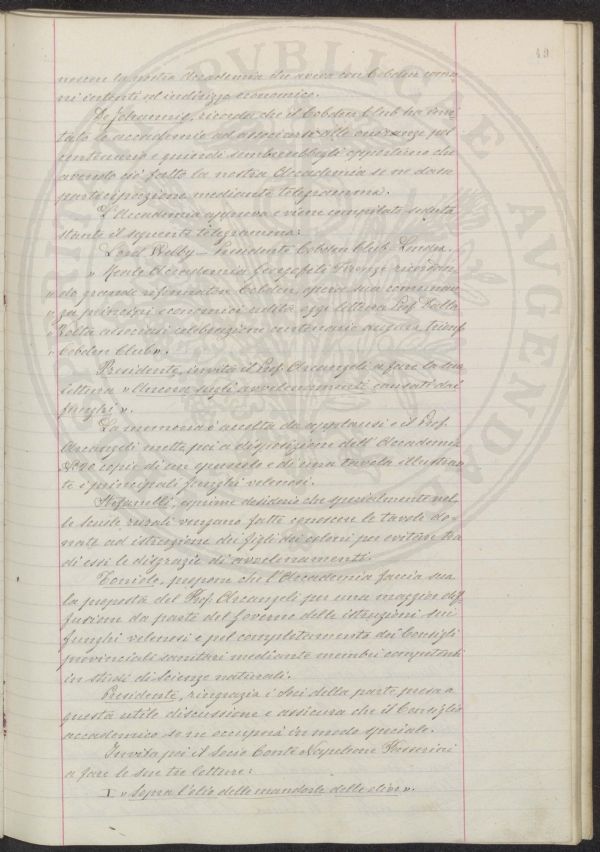 49
nescere la nostra Accademia che aveva con Cobden comu
ni intenti ed indirizzo economico.
De Johannis, ricorda che il Cobden Club ha invi
tato le accademie ad associarsi alle onoranze pel
centenario e quindi sembrerebbegli opportuno che
avendo ciò fatto la nostra Accademia se ne dasse
partecipazione mediante telegramma.
L'Accademia approva e viene compilato seduta
stante il seguente telegramma:
Lord Welby – Presidente Cobden Club Londra.
" Reale Accademia Georgofili Firenze ricordan
" do grande riformatore Cobden, opera sua comunan
" za principi economici udita oggi lettura Prof. Dalla
" Volta associasi celebrazione centenario augura trionfo
" Cobden Club".
Presidente, invita il Prof. Arcangeli a fare la sua
lettura "Ancora sugli avvelenamenti causati dai
funghi".
La memoria è accolta da applausi e il Prof.
Arcangeli mette poi a disposizione dell'Accademia
N. 20 copie di un opuscolo e di una tavola illustran
te i principali funghi velenosi.
Stefanelli, esprime desiderio che specialmente nel
le scuole rurali vengano fatte conoscere le tavole do-
nate ad istruzione dei figli dei coloni per evitare tra
di essi le disgrazie di avvelenamenti.
Toniolo, propone che l'Accademia faccia sua
la proposta del Prof. Arcangeli per una maggior dif
fusione da parte del Governo delle istruzioni sui
funghi velenosi e pel completamento dei Consigli
provinciali sanitari mediante membri competenti
in studi di Scienze naturali.
Presidente, ringrazia i Soci della parte presa a
questa utile discussione e assicura che il Consiglio
accademico se ne occuperà in modo speciale.
Invita poi il Socio Conte Napoleone Passerini
a fare le sue tre letture:
I "Sopra l'olio delle mandorle delle olive".
PVBLICAE
AVGENDAE